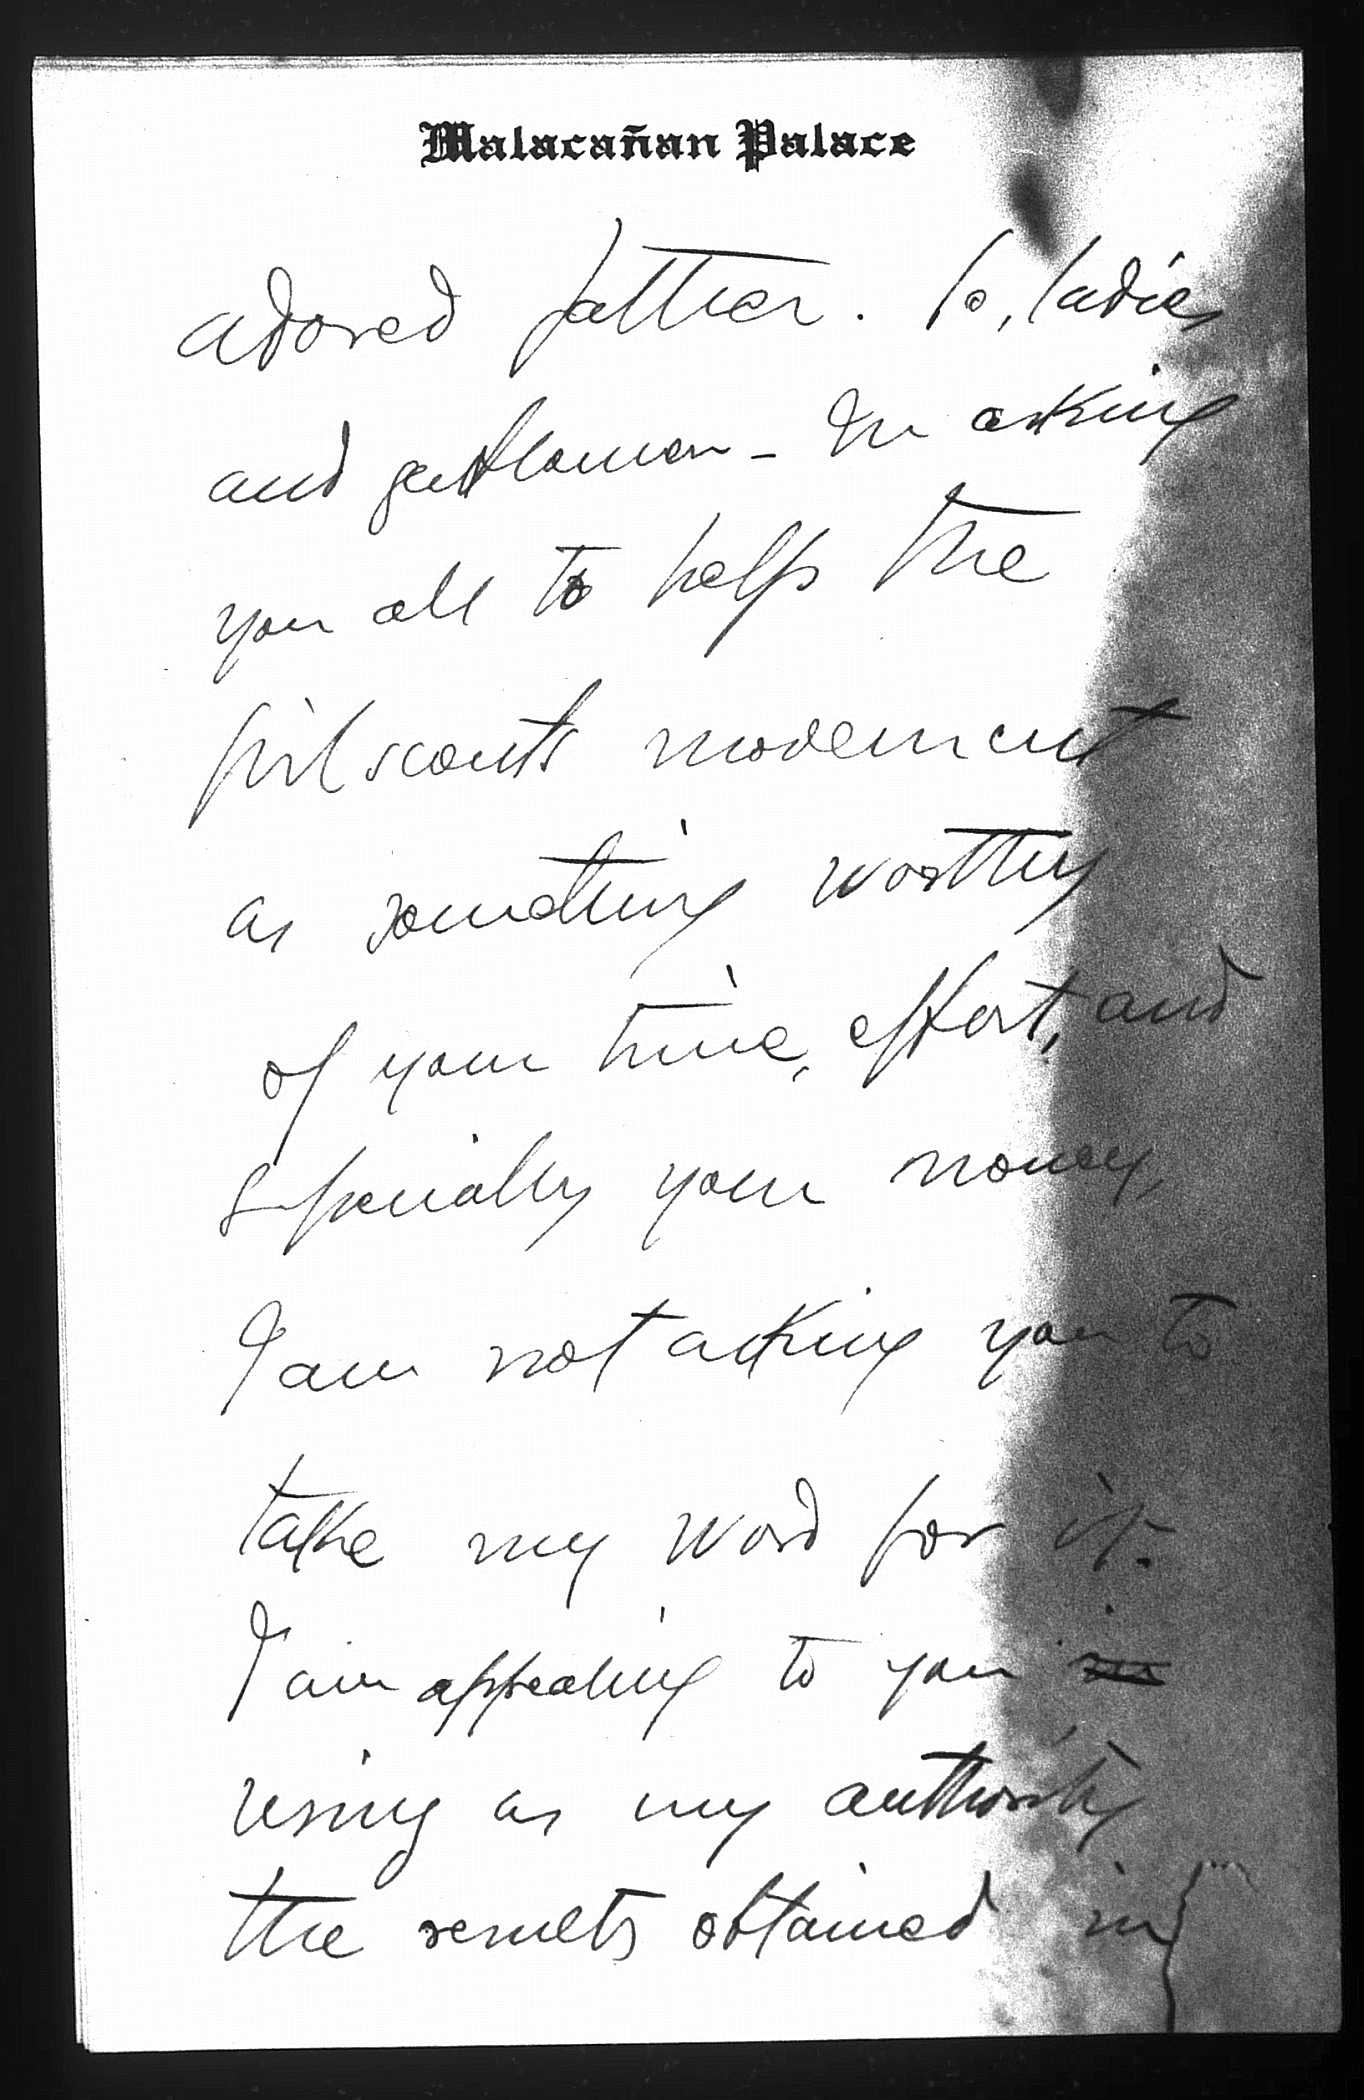 Malacañan Palace
adored father. So, ladies
and gentlemen - In asking
you all to help the
girl scouts movement
as something worthy
of your time, effort, and
specially your money,
I am not asking you to
take my word for it.
I am appealing to you
using as my authority
the results obtained in